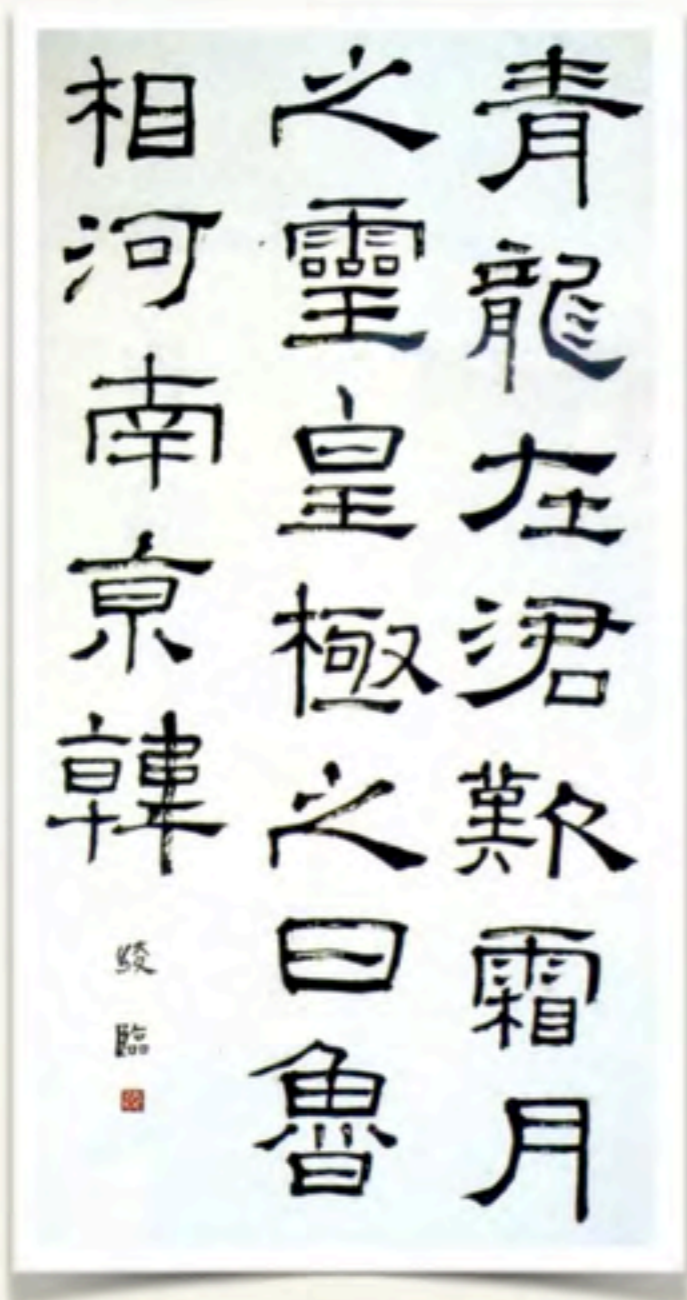 青龍在涒歎霜月
之靈皇極之日魯
相河南亰韓
駿臨